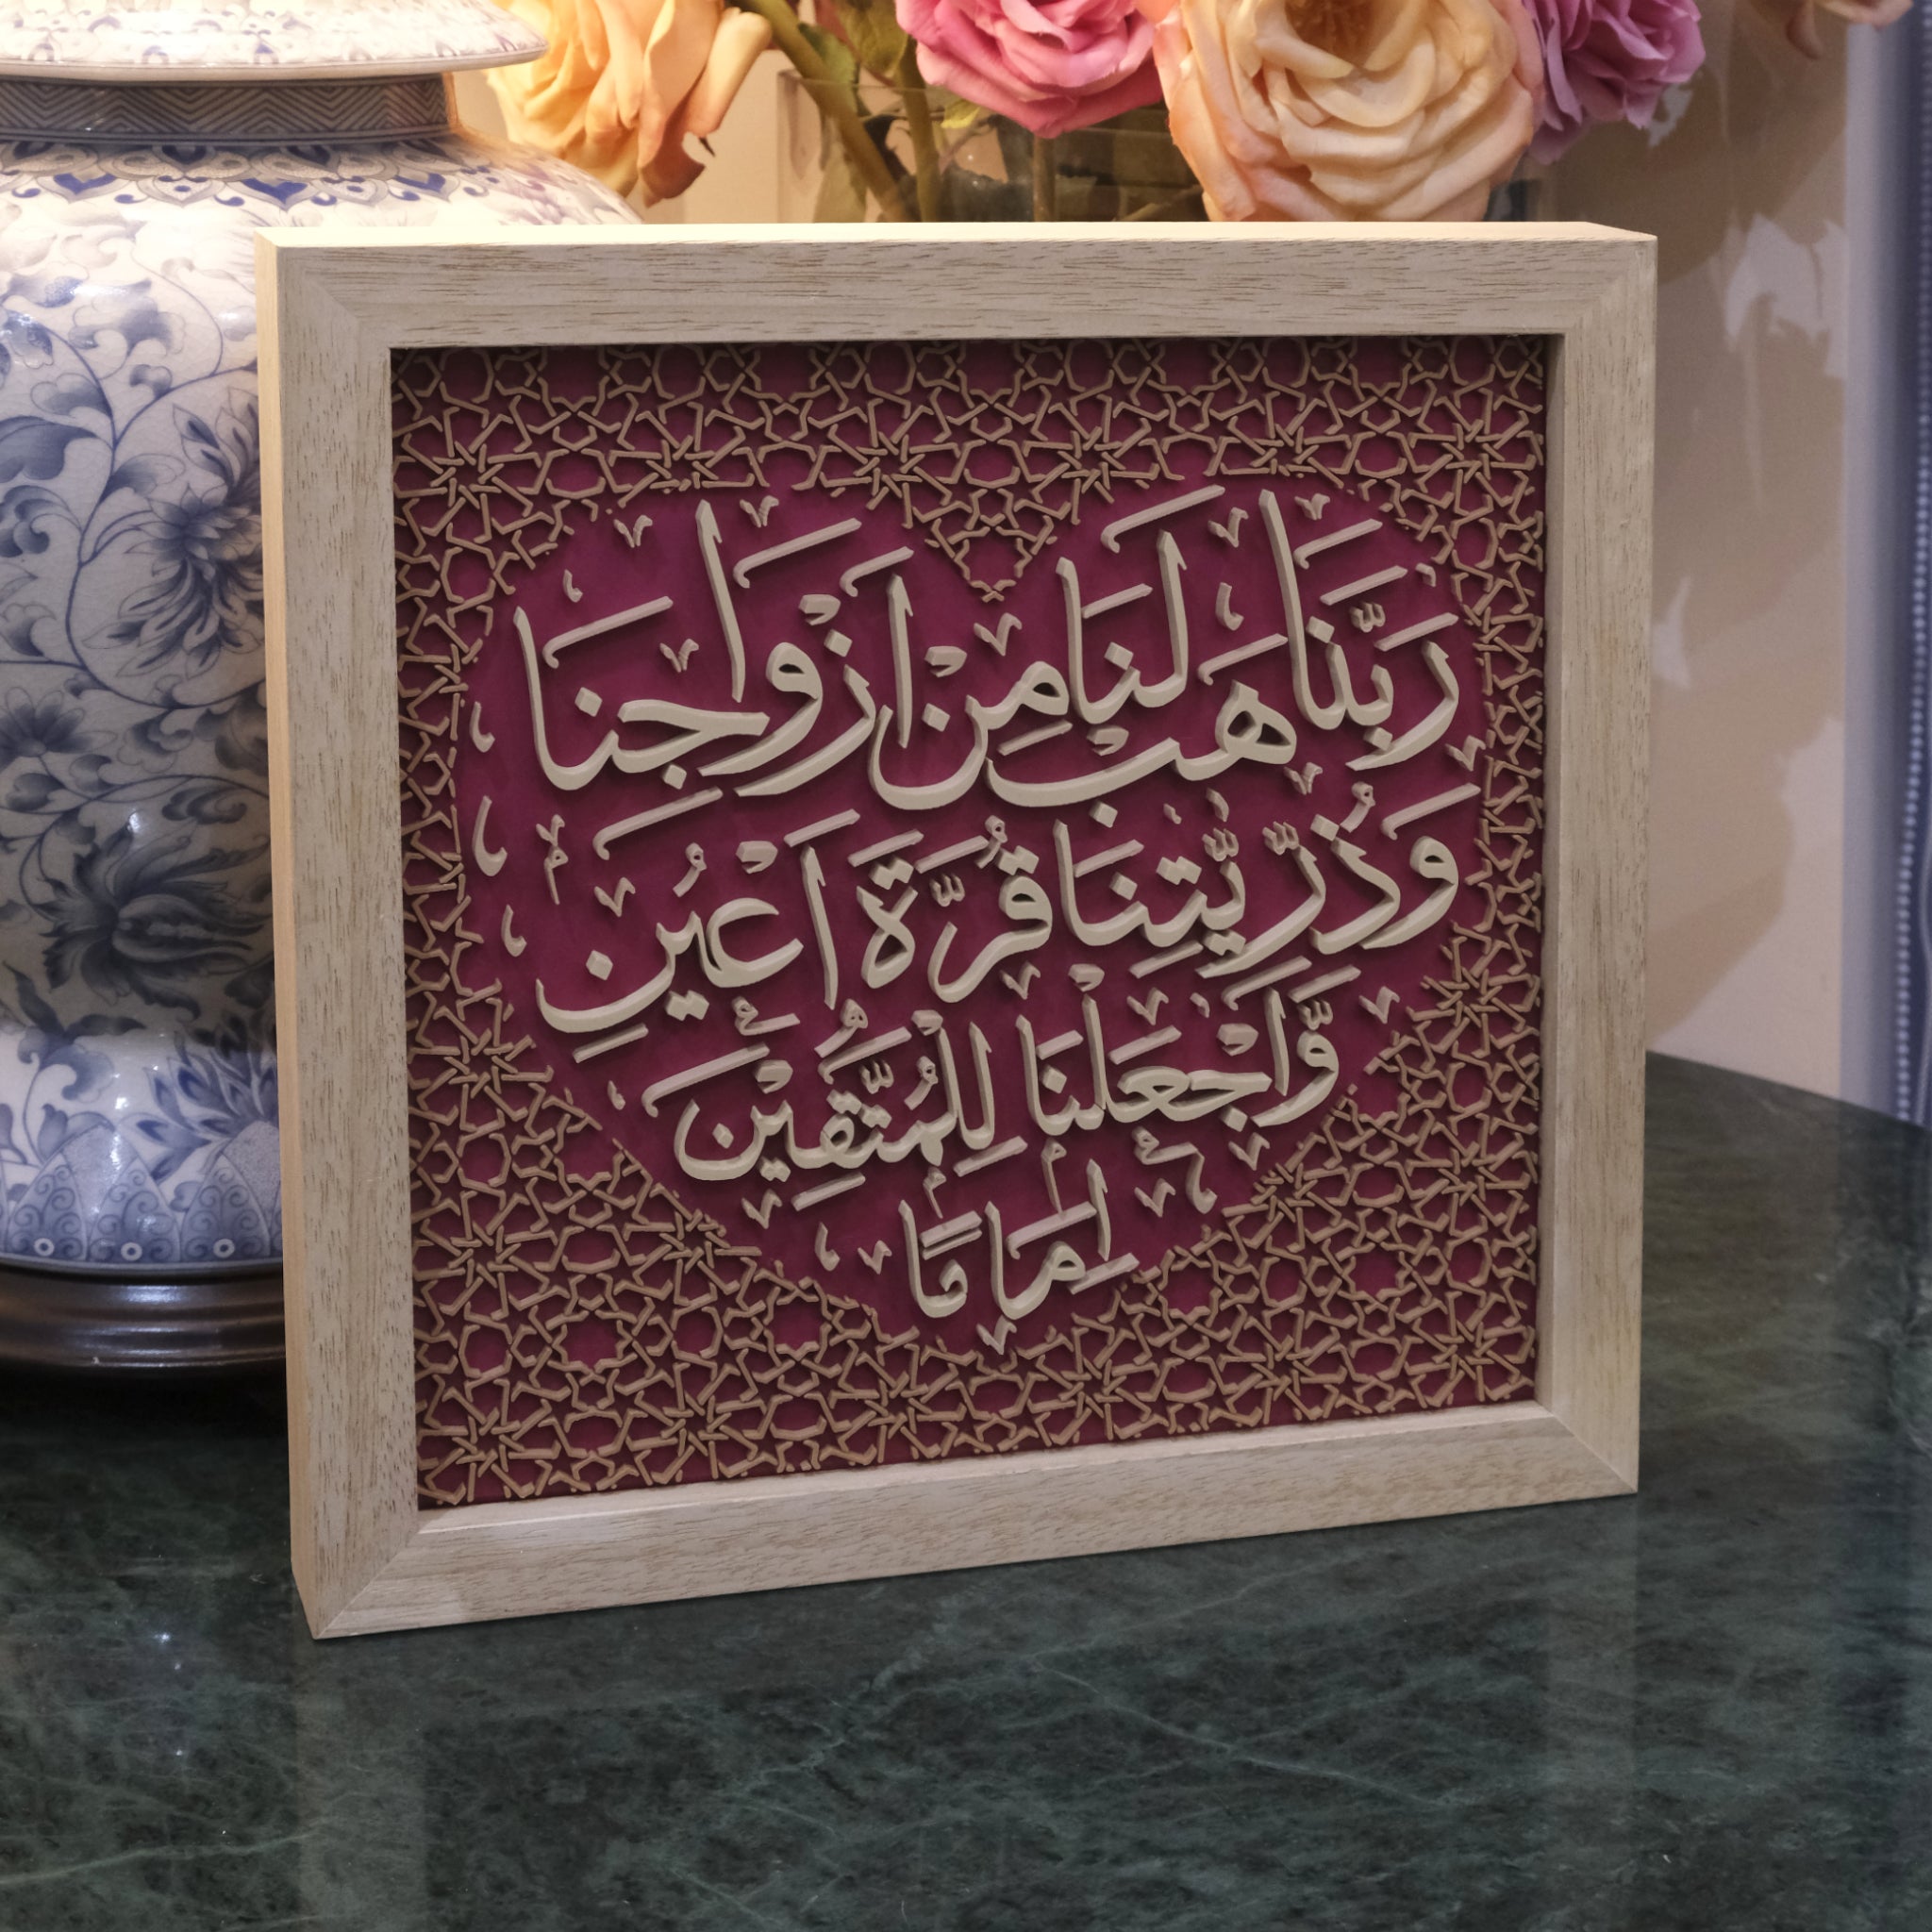 رَبَّنَا هَبْ لَنَا مِنْ اَزْوَاجِنَا
وَذُرِّيّٰتِنَا قُرَّةَ اَعْيُنٍ
وَّاجْعَلْنَا لِلْمُتَّقِيْنَ
اِمَامًا